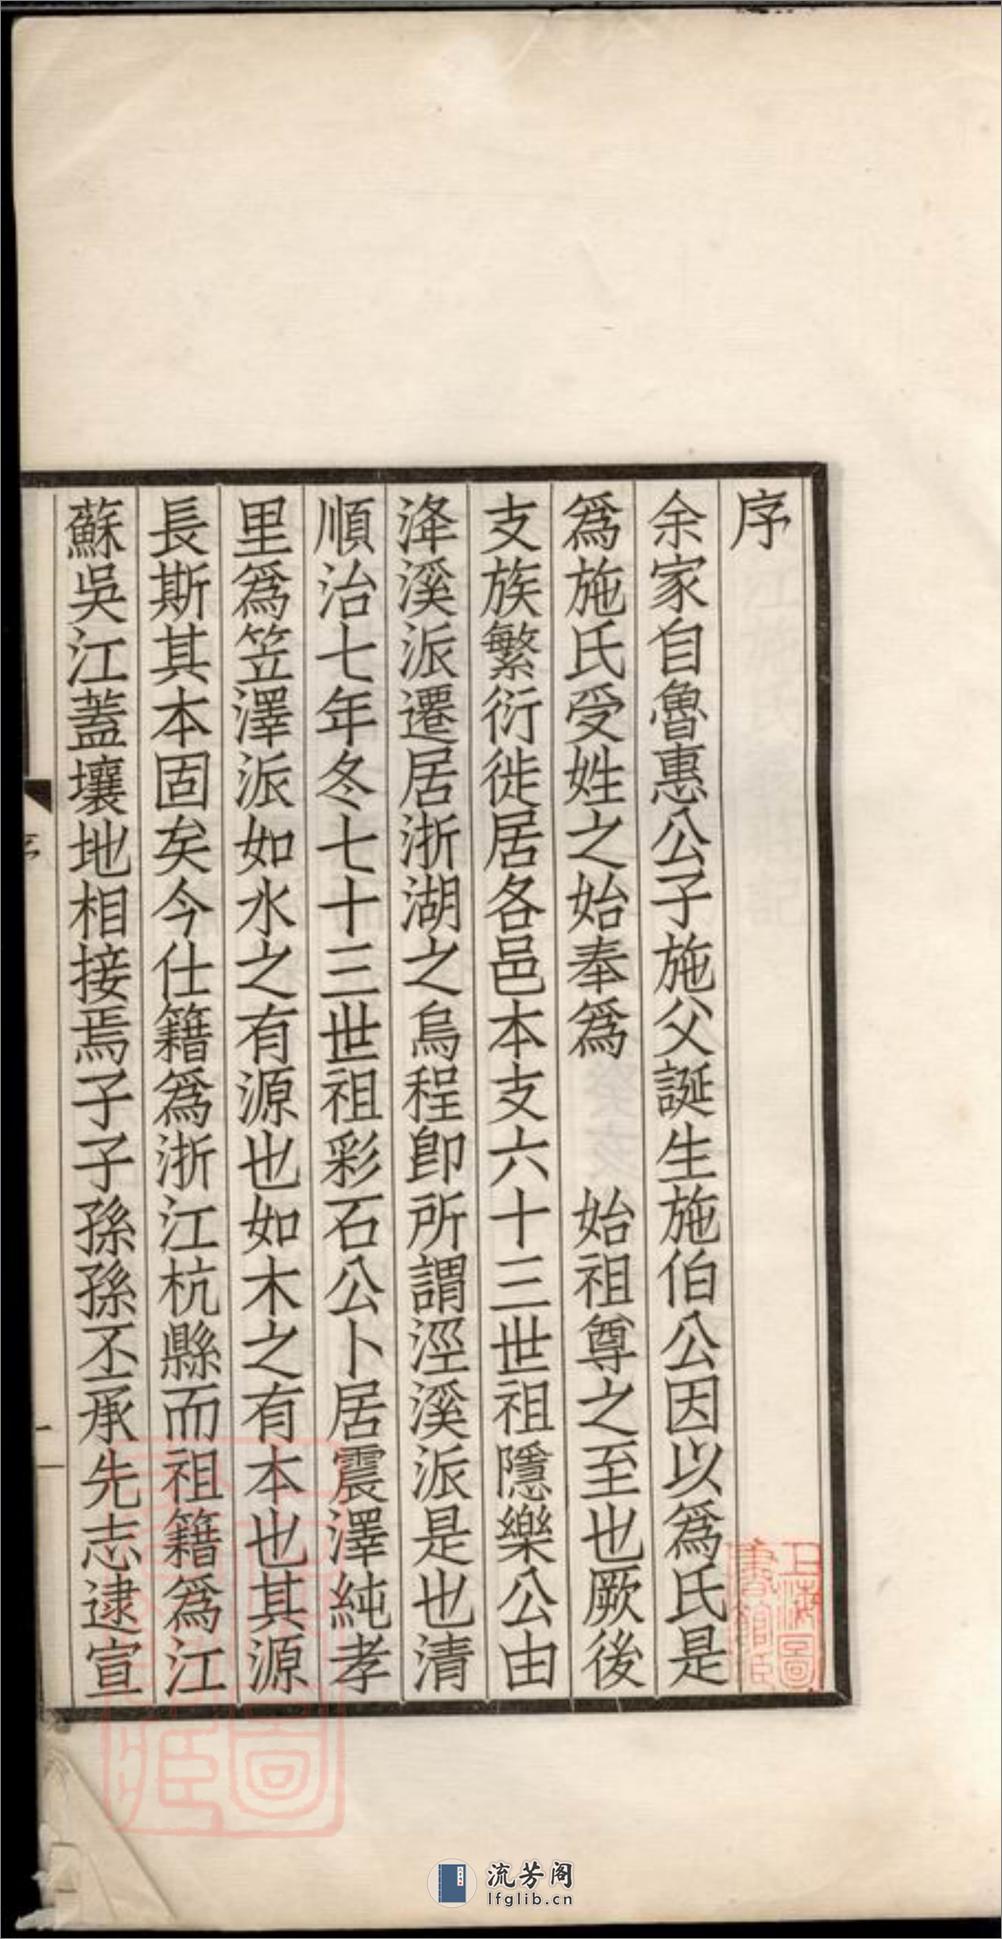 序
余家自魯惠公子施父誕生施伯公因以爲氏是
爲施氏受姓之始奉爲　始祖尊之至也厥後
支族繁衍徙居各邑本支六十三世祖隱樂公由
洚溪派遷居浙湖之烏程卽所謂涇溪派是也清
順治七年冬七十三世祖彩石公卜居震澤純孝
里爲笠澤派如水之有源也如木之有本也其源
長斯其本固矣今仕籍爲浙江杭縣而祖籍爲江
蘇吳江蓋壤地相接焉子子孫孫丕承先志逮宣
序
一
上海圖
書館藏
流芳阁
lfglib.cn